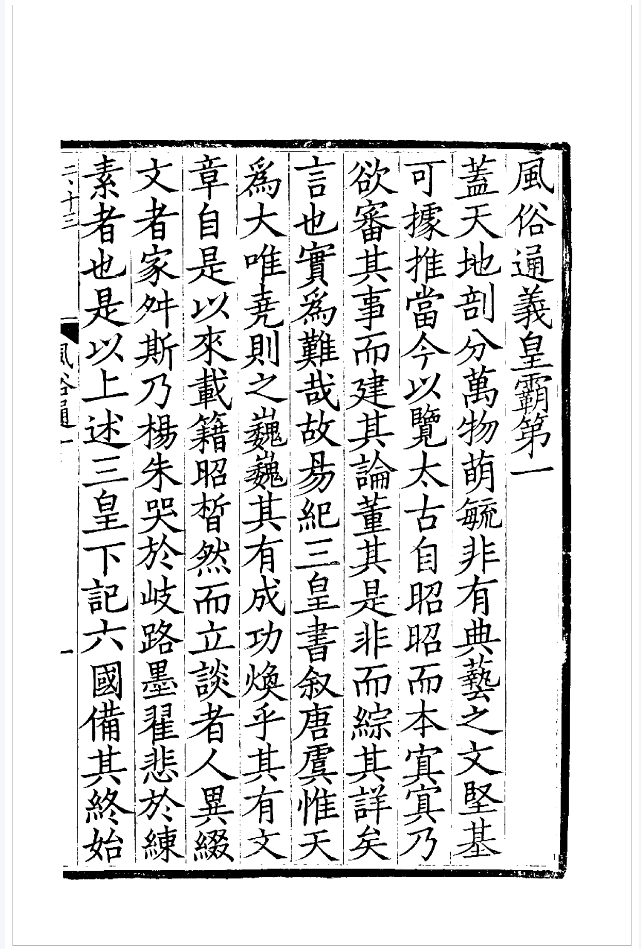 風俗通義皇霸第一
蓋天地剖分萬物萌毓非有典藝之文堅基
可據推當今以覽太古自昭昭而本㝠㝠乃
欲審其事而建其論董其是非而綜其詳矣
言也實爲難哉故易紀三皇書叙唐虞惟天
爲大唯堯則之巍巍其有成功煥乎其有文
章自是以來載籍昭晳然而立談者人異綴
文者家舛斯乃楊朱哭於岐路墨翟悲於練
素者也是以上述三皇下記六國備其終始
二、十三
風俗通一
一